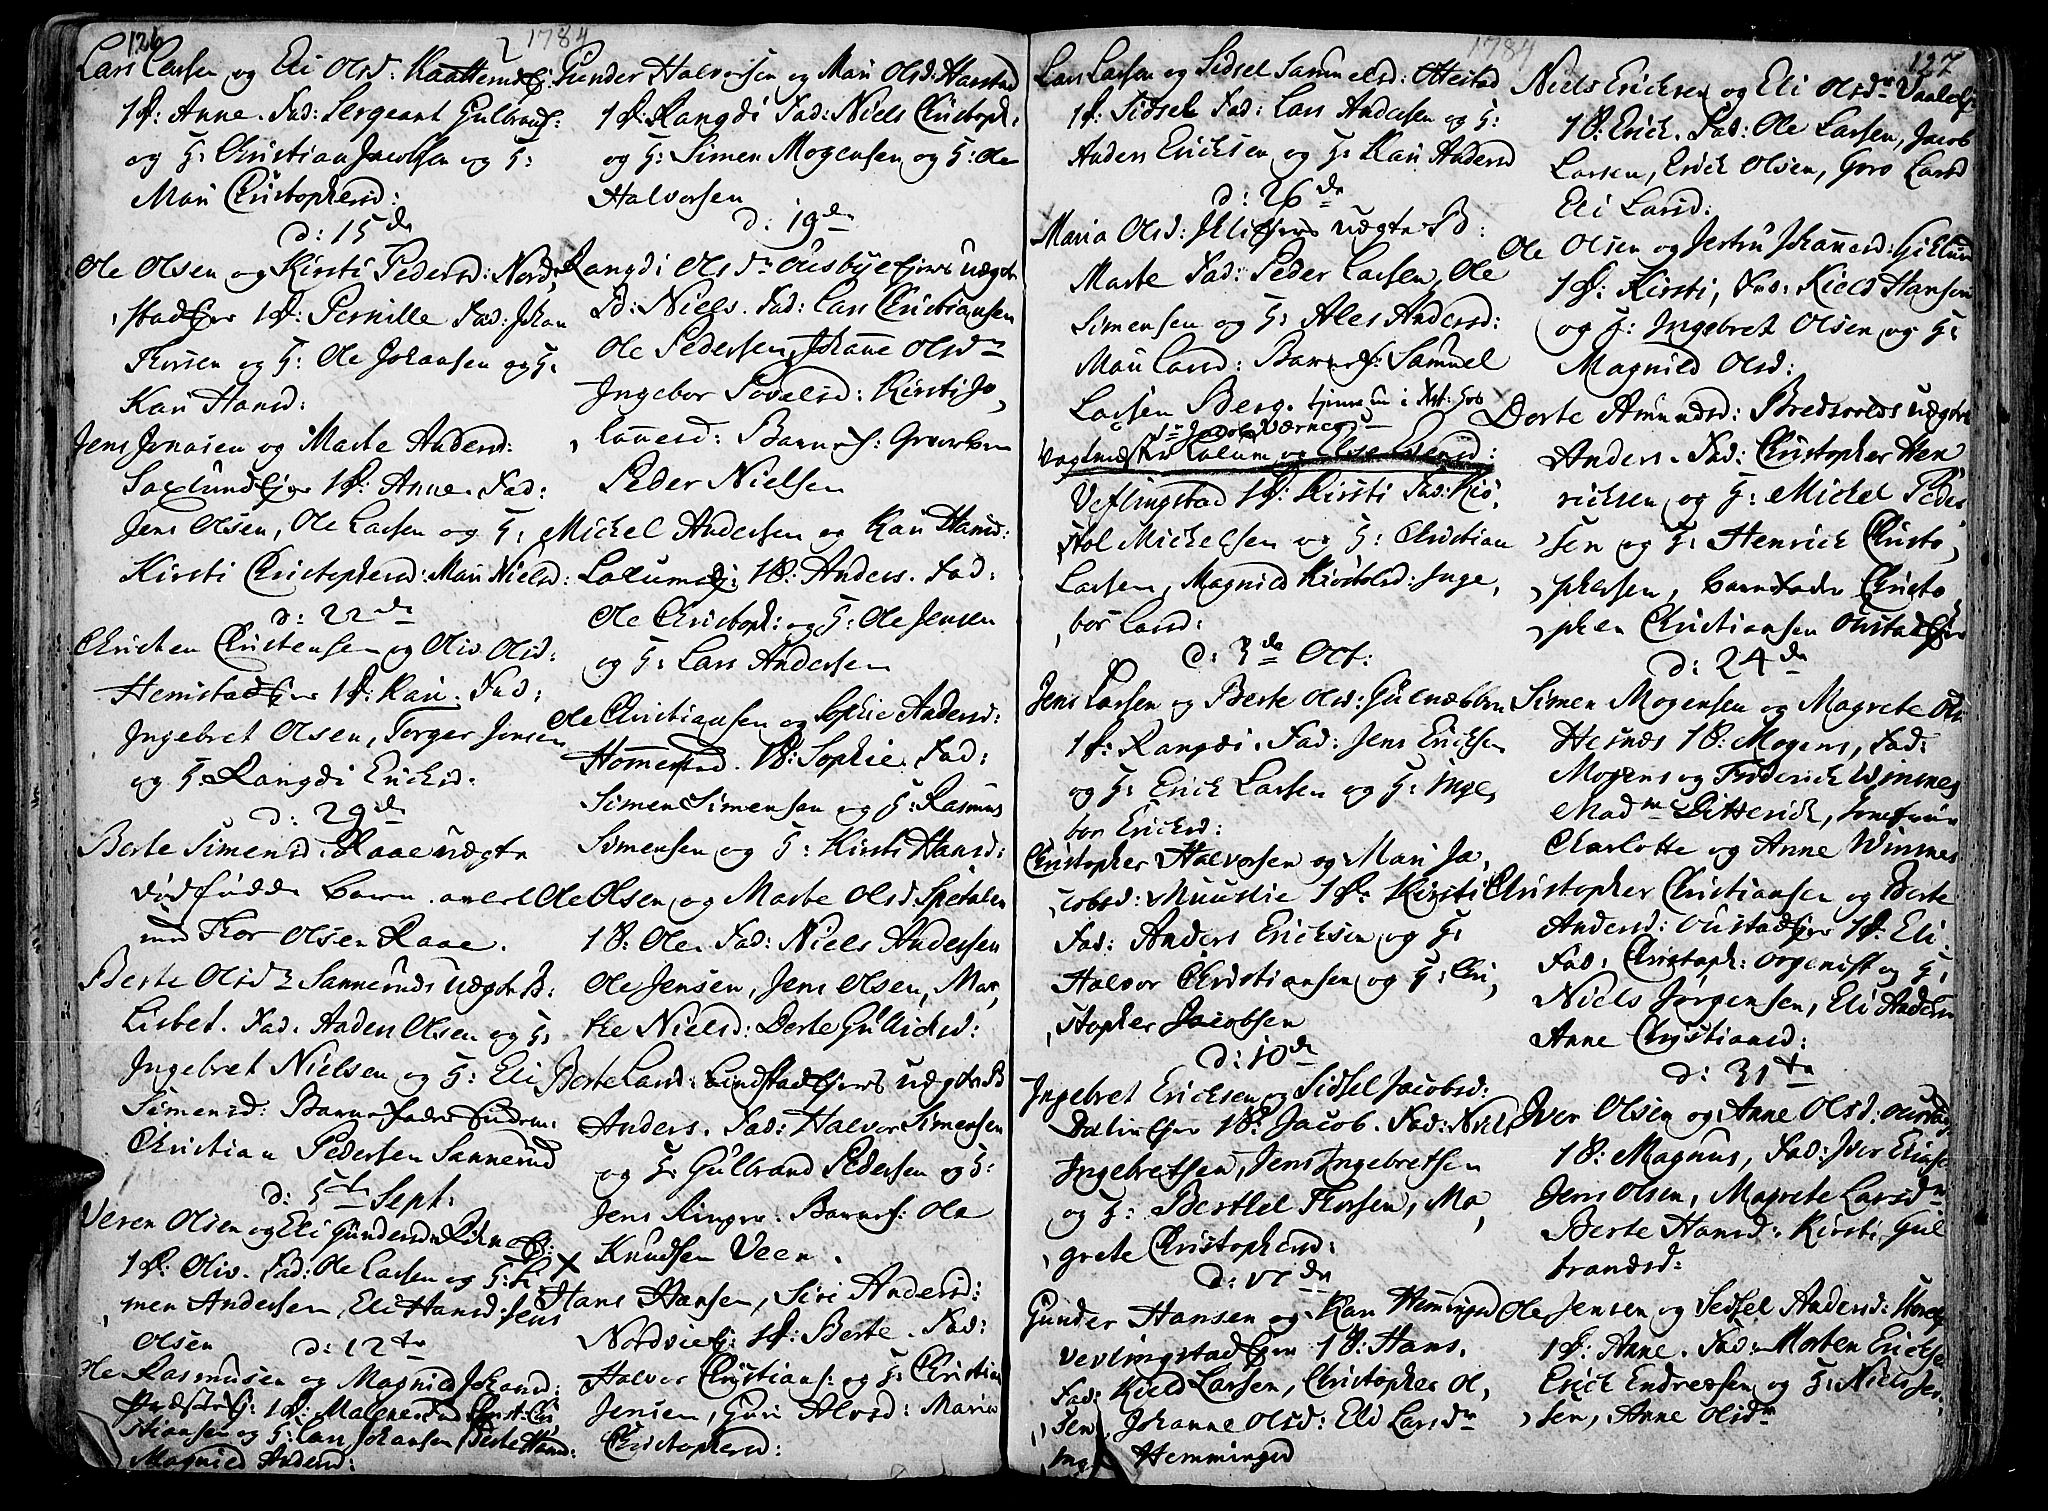 126
1784
Lars Larsen og Eli Olsd:
1 P: Anne. Fad: Sergeant Gulbrans:
og H: Christian Jacobsen og H:
Mari Christophersd:
d: 15de
Ole Olsen og Kirsti Pedersd: Nord,
stad Ejer 1 P: Pernille Fad: Johan
Thorsen og H: Ole Johansen og H:
Kari Hansd:
Jens Jonasen og Marte Andersd:
Saxlund Ejer 1 P: Anne. Fad:
Jens Olsen, Ole Larsen og H:
Kirsti Christophersd: Mari Nielsd:
d: 22de
Christen Christensen og Oliv Olsd:
Hemstad Ejer 1 P: Kari. Fad:
Ingebret Olsen, Torger Jonsen
og H: Rangdi Ericksd:
d: 29de
Berte Simensd: Raae uægte
dødfødde Barn avlet
med Thor Olsen Raae.
Berte Olsdr Sannerud uægte B:
Lisbet. Fad: Anders Olsen og H:
Ingebret Nielsen og H: Eli
Simensd: Barne Fader
Christian Pedersen Sannerud
d: 5te Sept:
Veren Olsen og Eli Gundersdr
1 P: Oliv. Fad: Ole Larsen og H: Si,
men Andersen, Eli Hansd: Jens
Olsen
d: 12te
Ole Rasmusen og Magnild Johansd:
1 P: Malene Fad: Christ: Chri
stiansen og H: Lars Johansen, Berte Hansd:
Magnild Andersd:
Gunder Halvorsen og Mari Olsd: Harstad
1 P: Rangdi Fad: Niels Christoph,
og H: Simen Mogensen og H: Ole
Halvorsen
d: 19de
Rangdi Olsdr Ousbye Ejers uægte
B: Niels. Fad: Lars Christiansen
Ole Pedersen, Johanne Olsdr
Ingebor Povelsd: Kirsti Jo,
hannesd: Barnef:
Peder Nielsen
Michel Andersen og Kari Hansd:
Lalum Ej: 1 B: Anders. Fad:
Ole Christoph: og H: Ole Jensen
og H: Lars Andersen
Ole Christiansen og Sophie Andersd:
Hommerstad. 1 P: Sophie. Fad:
Simen Simensen og H: Rasmus
Simensen og H: Kirsti Hansd:
Ole Olsen og Marte Olsd: Spetalen
1 B: Ole. Fad: Niels Andersen
Ole Jensen, Jens Olsen, Mar,
the Nielsd: Dorte Gullichsd:
Berte Larsd: Lindstad Ejers uægte B
Anders. Fad: Halvor Simensen
og H: Gulbrand Pedersen og H:
Jens Ringer. Barnef: Ole
Knudsen Veen.
Hans Hansen, Siri Andersd:
Nordvie Ej: 1 P: Berte. Fad:
Halvor Christians: og H: Christian
Jensen, Guri Alvsd: Maria
Christophersd:
1784
127
Lars Larsen og Sidsel Samuelsd: Ottestad
1 P: Sidsel Fad: Lars Andersen og H:
Anders Ericksen og H: Kari Andersd
d: 26de
Maria Olsd: uægte B:
Marte Fad: Peder Larsen, Ole
Simensen og H: Ales Andersd:
Mari Larsd: Barnef: Samuel
Larsen Berg.
Lalum og Else Evensd:
Veflingstad 1 P: Kirsti Fad: Kiø,
stol Michelsen og H: Christian
Larsen, Magnild Kiøstolsd: Inge,
bor Larsd:
d: 3de Oct:
Jens Larsen og Berte Olsd:
1 P: Rangdi. Fad: Jens Ericksen
og H: Erick Larsen og H: Inge,
bor Ericksd:
Christopher Halvorsen og Mari Ja,
cobsd: Muuslie 1 P: Kirsti
Fad: Anders Ericksen og H:
Halvor Christiansen og H: Chri,
stopher Jacobsen
d: 10de
Ingebret Ericksen og Sidsel Jacobsd:
Dalin Ejer 1 B: Jacob. Fad: Niels
Ingebretsen, Jens Ingebretsen
og H: Berthel Thorsen, Ma,
grete Christophersd:
d: 17de
Gunder Hansen og Kari Hemmingsd
Vevlingstad Ejer 1 B: Hans.
Fad: Kield Larsen, Christopher Ol,
sen, Johanne Olsd: Eli Larsdr
Ing. Hemmingsd
Niels Ericksen og Eli Olsdr
1 B: Erick. Fad: Ole Larsen, Jacob
Larsen, Erick Olsen, Goro Larsd
Eli Larsd:
Ole Olsen og Jertru Johannesd:
1 P: Kirsti, Fad: Kield Hansen
og H: Ingebret Olsen og H:
Magnild Olsd:
Dorte Amundsd: Bredvolds uægte
Anders. Fad: Christopher Hen
ricksen og H: Michel Peder,
sen og H: Henrick Christo,
phersen, Barnefader Christo
pher Christiansen Oustad Ejer
d: 24de
Simen Mogensen og Magrete Ols
Hesnæs 1 B: Mogens, Fad:
Mogens og Friderich Winsnes
Madme Ditterich, Jomfruer
Charlotte og Anne Winsnes
Christopher Christiansen og Berte
Andersd: Oustad Ejer 1 P: Eli.
Fad: Christoph: Organist og H:
Niels Jørgensen, Eli Andersd
Anne Christiansd:
d: 31te
Iver Olsen og Anne Olsd:
1 B: Magnus, Fad: Iver Ericks
Jens Olsen, Magrete Larsdr
Berte Hansd: Kirsti Gul
brandsd:
Ole Jensen og Sidsel Andersd:
1 P: Anne. Fad: Morten Erickse
Erick Endresen og H: Niels Jør,
sen, Anne Olsdr